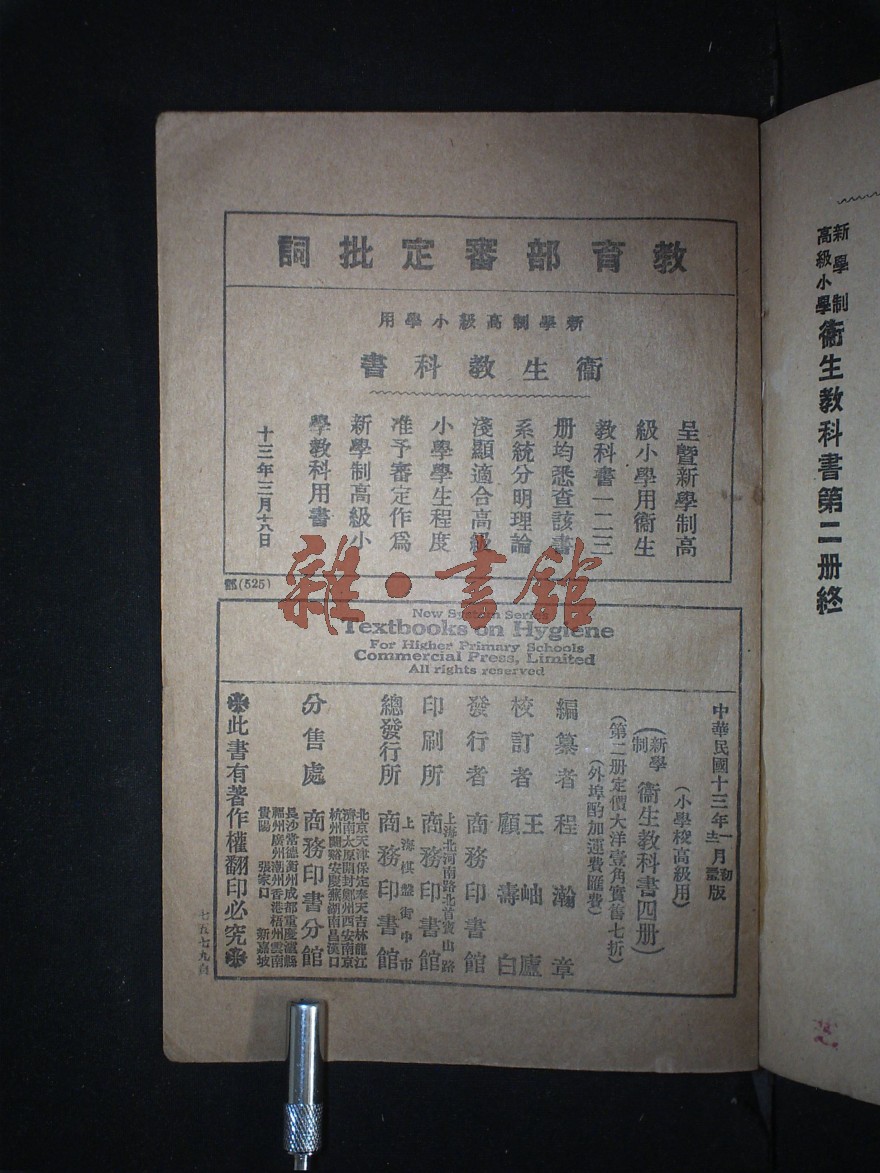 新學制
高級小學
衞生教科書第二册終
教育部審定批詞
新學制高級小學用
衞生教科書
呈曁新學制高
級小學用衞生
教科書一二三
册均悉查該書
系統分明理論
淺顯適合高級
小學學生程度
准予審定作爲
新學制高級小
學教科用書
十三年三月十八日
(525)
雜·書舘
New System Series
Textbooks on Hygiene
For Higher Primary Schools
Commercial Press, Limited
All rights reserved
中華民國十三年一月初版
(小學校高級用)
(新學制 衞生教科書四册)
(第二册定價大洋壹角實售七折)
(外埠酌加運費匯費)
編纂者 程瀚章
校訂者 王岫廬
顧壽白
發行者 商務印書館
印刷所 上海北河南路北首寶山路
商務印書館
總發行所 上海棋盤街中市
商務印書館
分售處 北京天津保定奉天吉林龍江
濟南太原開封鄭州西安南京
杭州蘭谿安慶蕪湖南昌漢口
商務印書分館
長沙常德衡州成都重慶瀘縣
福州廣州潮州香港梧州雲南
貴陽 張家口 新嘉坡
此書有著作權翻印必究
七五七九自